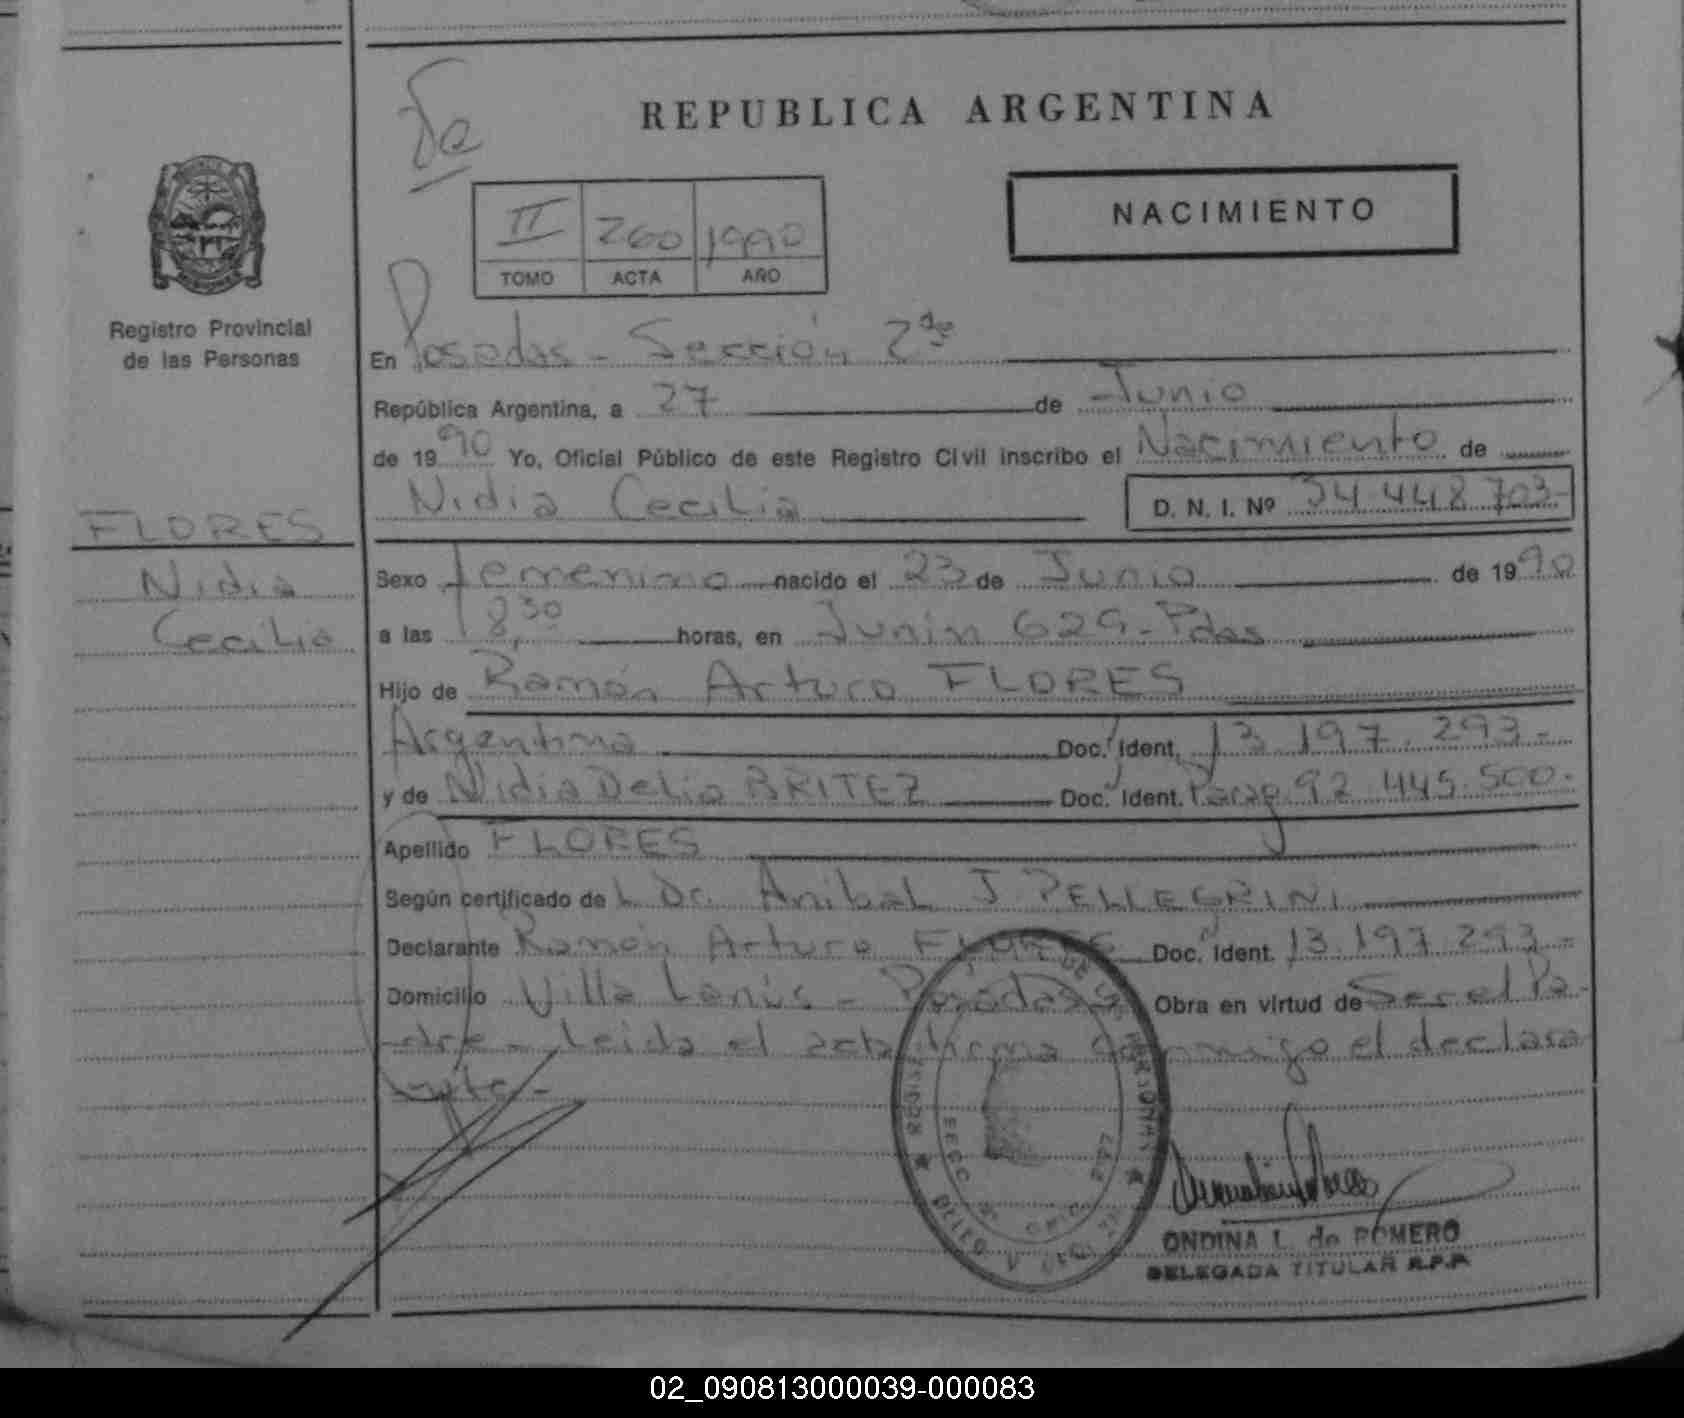 REPUBLICA ARGENTINA
NACIMIENTO
II 260 1990
TOMO ACTA AÑO
Registro Provincial
de las Personas
FLORES
Nidia
Cecilia
En Posadas - Sección 2da
República Argentina, a 27 de Junio
de 1990 Yo, Oficial Público de este Registro Civil inscribo el Nacimiento de
Nidia Cecilia D. N. I. Nº 34.448.703-
Sexo femenino nacido el 23 de Junio de 1990
a las 18,30 horas, en Junín 629 - Pdas
Hijo de Ramón Arturo FLORES
Argentino Doc. Ident. 13.197.293-
y de Nidia Delia BRITEZ Doc. Ident. Parag 92.445.500-
Apellido FLORES
Según certificado de L Dr. Anibal J PELLEGRINI
Declarante Ramón Arturo FLORES Doc. Ident. 13.197.293-
Domicilio Villa Lanús - Posadas Obra en virtud de Ser el Pa-
dre - Leida el acta firma conmigo el declara
nte -
ONDINA L. de ROMERO
DELEGADA TITULAR R.P.P.
02_090813000039-000083